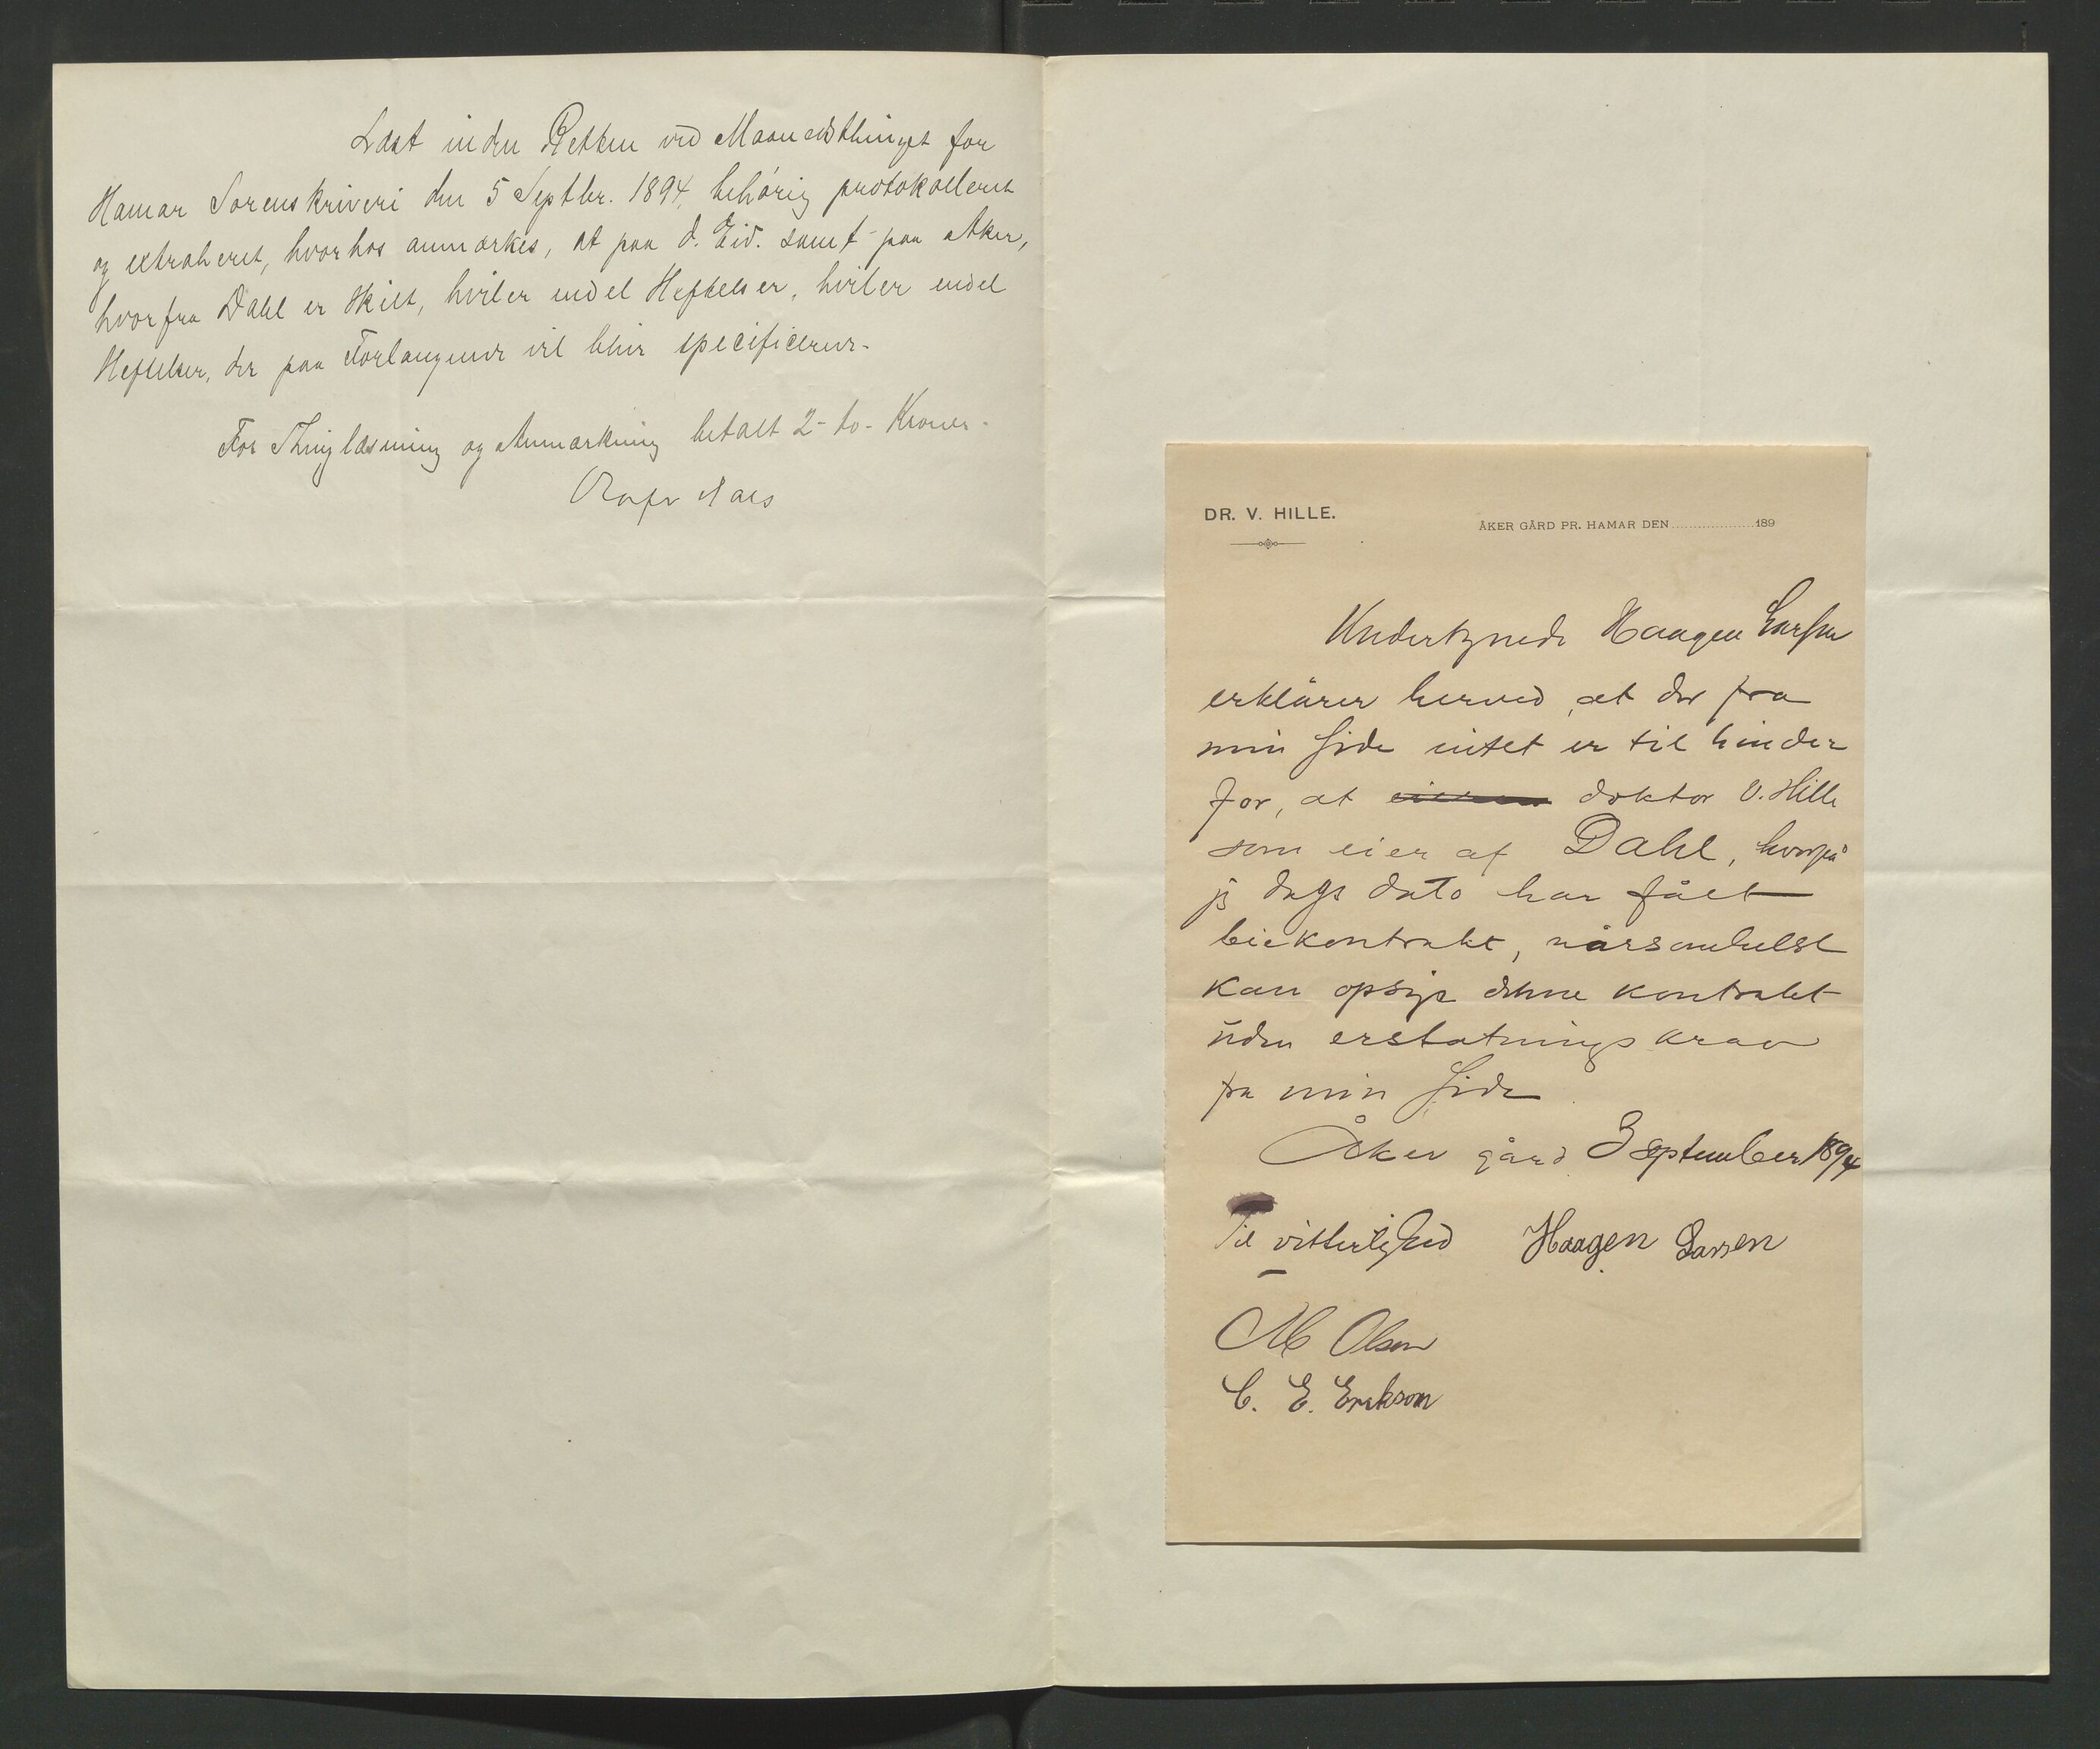 Læst inden Retten ved Maanedsthinget for
Hamar Sorenskriveri den 5 Septbr. 1894, behörig protokolleret
og extraheret, hvorhos anmærkes, at paa d. Eid. samt paa Aker,
hvorfra Dahl er skilt, hviler endel Heftelser, hviler endel
Heftelser, der paa Forlangende vil blive specificeret.
For Thinglæsning og Anmærkning betalt 2 - to - Kroner.
Aars
DR. V. HILLE.
ÅKER GÅRD PR. HAMAR DEN 189
Undertegnede Haagen Larsen
erklärer herved, at der fra
min side intet er til hinder
for, at doktor V. Hille
som eier af Dahl, hvorpå
jeg dags dato har fået
leiekontrakt, nårsomhelst
kan opsige denne kontrakt
uden erstatningskrav
fra min side
Åker gård 3 September 1894
Til vitterlighed Haagen Larsen
M Olsen
C. E. Erikson